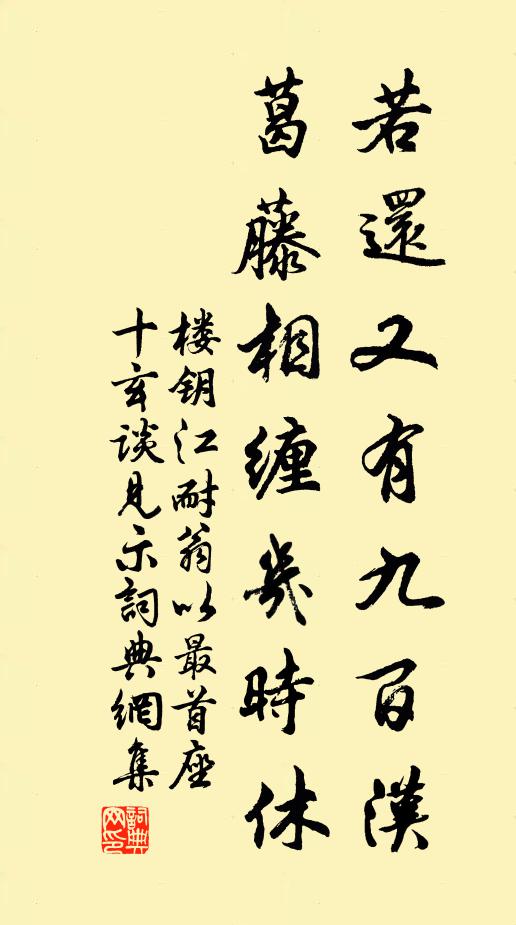 若還又有九百漢
葛藤相缠幾時休
楼钥江耐翁以最首座
十玄谈見示詞典網集
詞典網印